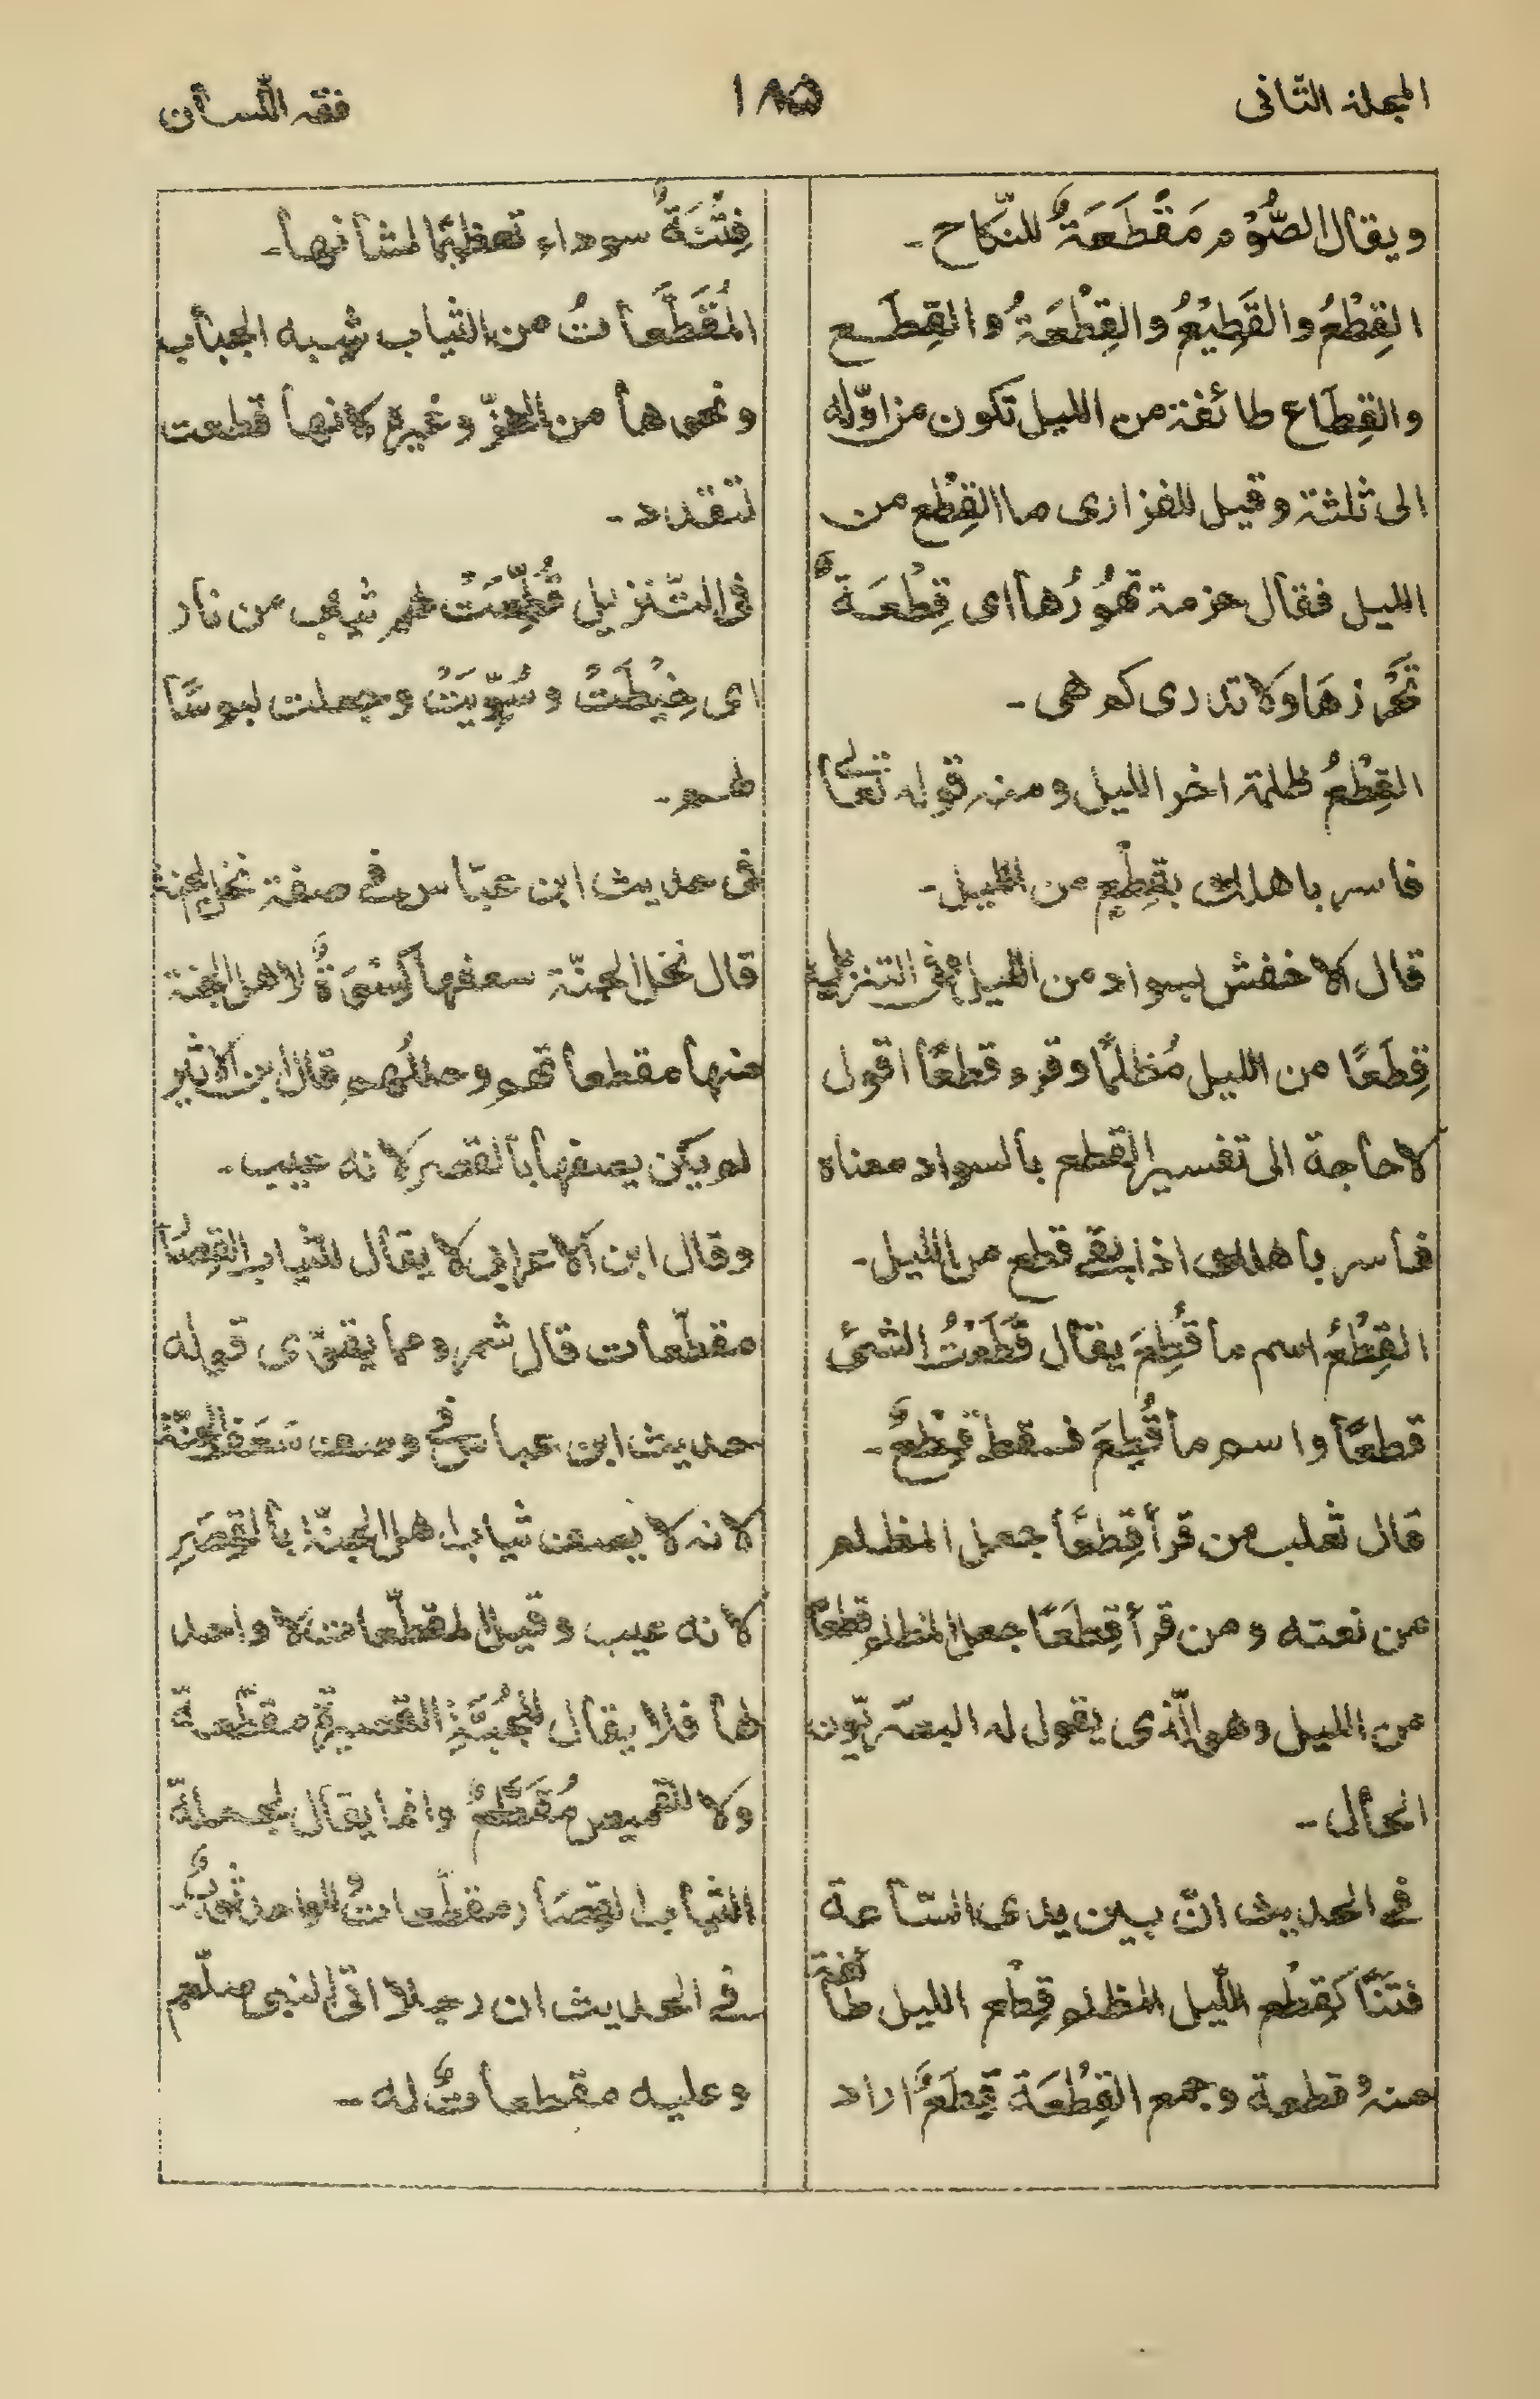 المجلد الثانى
١٨٥
فقه اللسان
ويقال الصَّوْم مَقْطَعَةٌ للنّكاح ـ
القِطْعُ والقَطِيْعُ والقِطْعَةُ والقِطَع
والقِطَاع طائفة من الليل تكون من اوّله
الى ثلثة وقيل للفزارى ما القِطْع من
الليل فقال حزمة تَهُوْرُها اى قِطْعَةٌ
تَحْرزهَا ولا تدرى كم هى ـ
القِطْعُ ظلمة اخر الليل ومنه قوله تعالى
فاسر باهلك بِقِطْعٍ من الليل ـ
قال الاخفش بسواد من الليل وفى التنزيل
قِطَعًا من الليل مُظلمًا وقرء قطعًا اقول
لا حاجة الى تفسير القطع بالسواد معناه
فاسر باهلك اذا بقے قطع من الليل ـ
القِطْعُ اسم ما قُطِعَ يقال قَطَعْتُ الشئ
قطعًا واسم ما قُطِعَ فسقط قِطْعٌ ـ
قال ثعلب من قرأ قِطعًا جعل المظلم
من نعته ومن قرأ قِطَعًا جعل المظلم قطعًا
من الليل وهو الّذى يقول له البصريّون
الحال ـ
فى الحديث انّ بين يدى السّاعة
فتنًا كَقِطْع اللّيل المظلم قِطْع الليل طائفة
منهُ قطعة وجمع القِطْعَة قِطَعٌ اراد
فِتْنَةٌ سوداء تعظيمًا لشأنها ـ
المُقَطَّعاتُ من الثياب شبه الجباب
ونحوها من الخزّ وغيره كانها قطعت
لتقدد ـ
فى التّنزيل قُطِّعَتْ لهم ثياب من نار
اى خِيْطَتْ وسُوِّيَتْ وجعلت لبوسًا
لهم ـ
فى حديث ابن عبّاس فى صفة نخل الجنة
قال نخل الجنّة سعفها كِسْوَةٌ لاهل الجنة
منها مقطعاتهم وحللُهم قال ابن الاثير
لم يكن يصفها بالقصر لانه عيب ـ
وقال ابن الاعرابى لا يقال للثياب القِصَار
مقطّعات قال شمر ومما يقوّى قوله
حديث ابن عباس فى وصف سَعَف الجنّة
لانه لا يصف ثياب اهل الجنّة بالقِصَرِ
لانه عيب وقيل المقطّعات لا واحد
لها فلا يقال للجُبَّةِ القصيرةِ مقطّعةٌ
ولا للقميص مُقَطَّعٌ وانما يقال لجملة
الثياب القِصَار مقطّعاتٌ والواحد ثوبٌ ـ
فى الحديث ان رجلا اتى النبى صلّعم
وعليه مقطعاتٌ له ـ